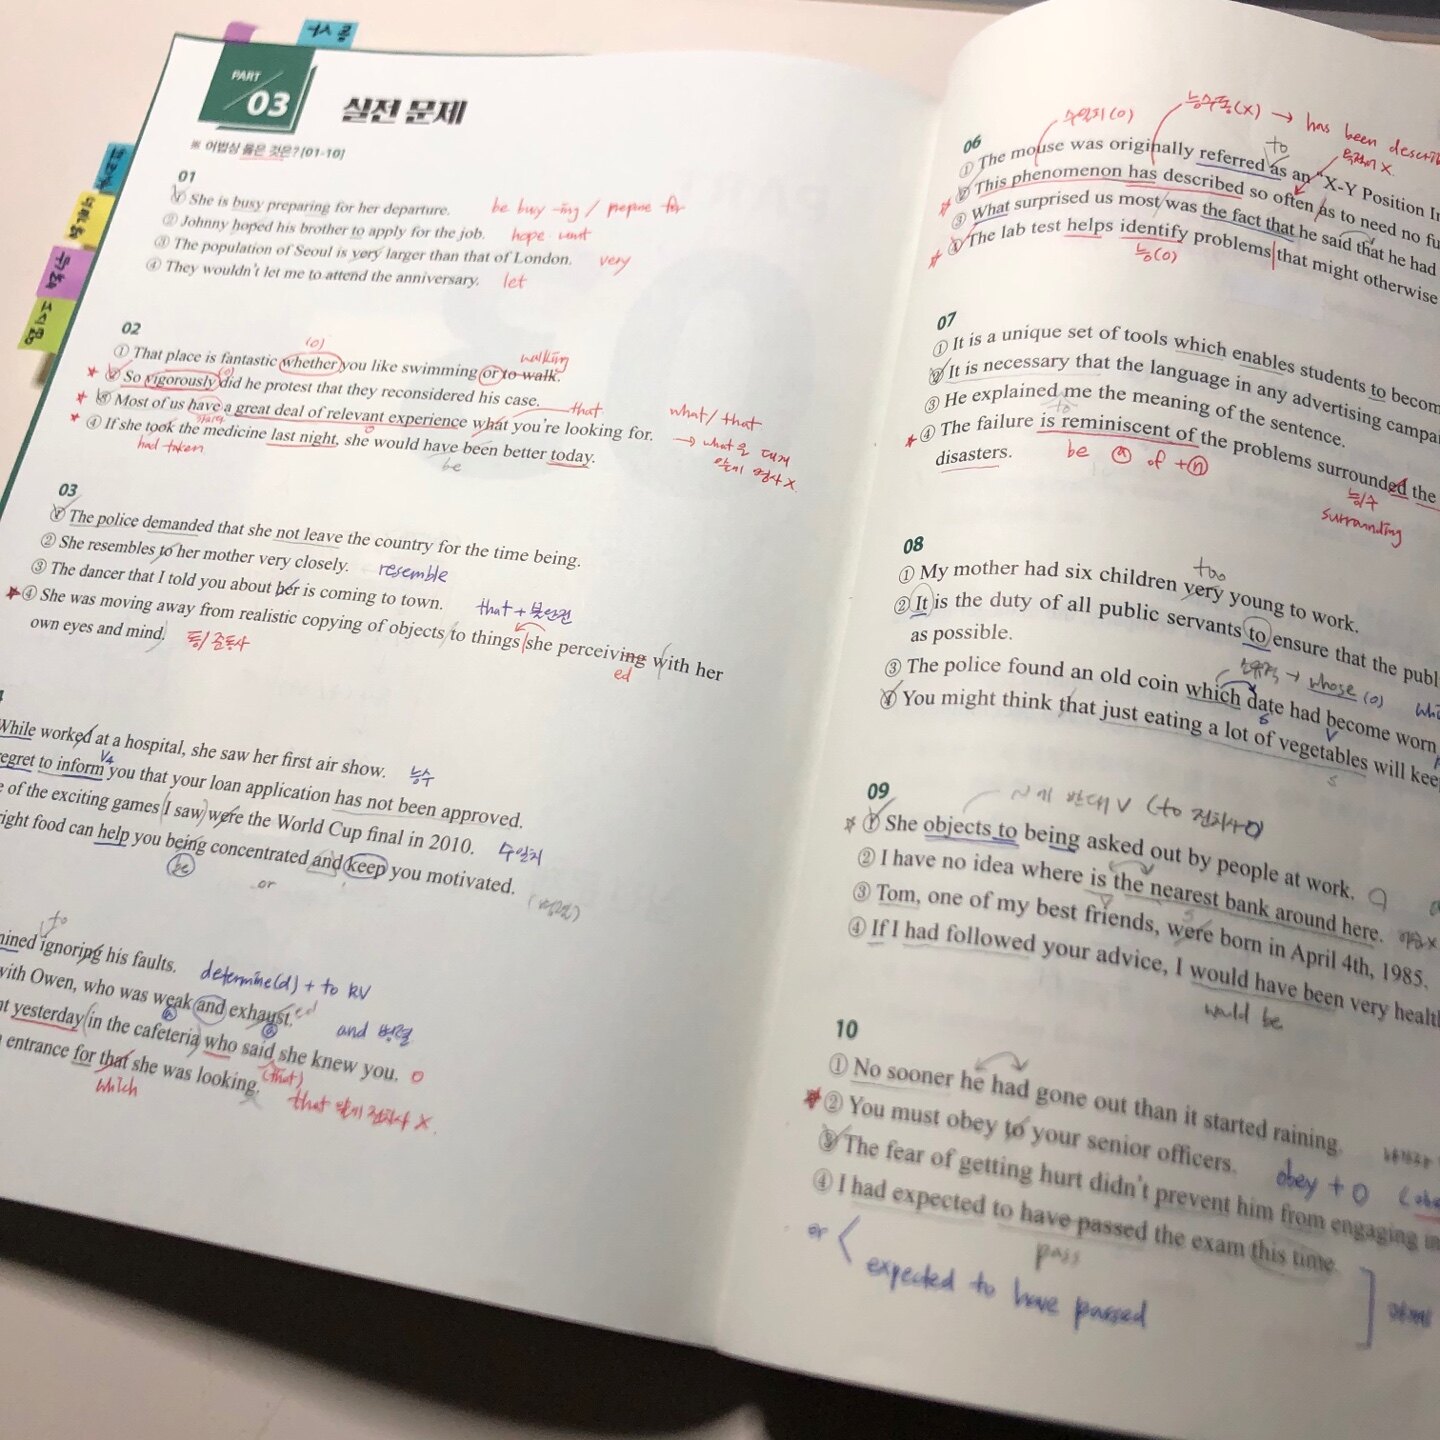 PART
03
실전 문제
※ 어법상 옳은 것은? [01-10]
01
① She is busy preparing for her departure. be busy -ing / prepare for
② Johnny hoped his brother to apply for the job. hope
③ The population of Seoul is very larger than that of London. very
④ They wouldn't let me to attend the anniversary. let
02
(o)
walking
① That place is fantastic whether you like swimming or to walk.
② So vigorously did he protest that they reconsidered his case.
that
③ Most of us have a great deal of relevant experience what you're looking for.
④ If she took the medicine last night, she would have been better today.
had taken
be
what / that
→ what은 대개
앞에 명사 X
03
① The police demanded that she not leave the country for the time being.
② She resembles to her mother very closely. resemble
③ The dancer that I told you about her is coming to town. that + 불완전
④ She was moving away from realistic copying of objects to things she perceiving with her
ed
own eyes and mind. 동/준동사
While worked at a hospital, she saw her first air show. 능수
V4
regret to inform you that your loan application has not been approved.
of the exciting games I saw were the World Cup final in 2010. 수일치
right food can help you being concentrated and keep you motivated.
be
or
to
mined ignoring his faults. determine(d) + to RV
with Owen, who was weak and exhaust. ed
and 병렬
yesterday in the cafeteria who said she knew you. O
(that)
entrance for that she was looking.
which
that 앞에 전치사 X.
수일치(O)
능수동(X) → has been describ
06
to
① The mouse was originally referred as an "X-Y Position In
② This phenomenon has described so often as to need no fu
③ What surprised us most was the fact that he said that he had
④ The lab test helps identify problems that might otherwise
능(O)
07
① It is a unique set of tools which enables students to becom
② It is necessary that the language in any advertising campa
③ He explained me the meaning of the sentence.
to
④ The failure is reminiscent of the problems surrounded the
disasters. be ⓐ of + ⓝ
능/수
surrounding
08
too
① My mother had six children very young to work.
② It is the duty of all public servants to ensure that the publ
as possible.
소유격 → whose (O)
③ The police found an old coin which date had become worn
④ You might think that just eating a lot of vegetables will kee
09
반대 V (to 전치사O)
① She objects to being asked out by people at work.
② I have no idea where is the nearest bank around here.
③ Tom, one of my best friends, were born in April 4th, 1985.
④ If I had followed your advice, I would have been very health
would be
10
① No sooner he had gone out than it started raining.
② You must obey to your senior officers.
obey + O
③ The fear of getting hurt didn't prevent him from engaging in
④ I had expected to have passed the exam this time.
pass
or
expected to have passed